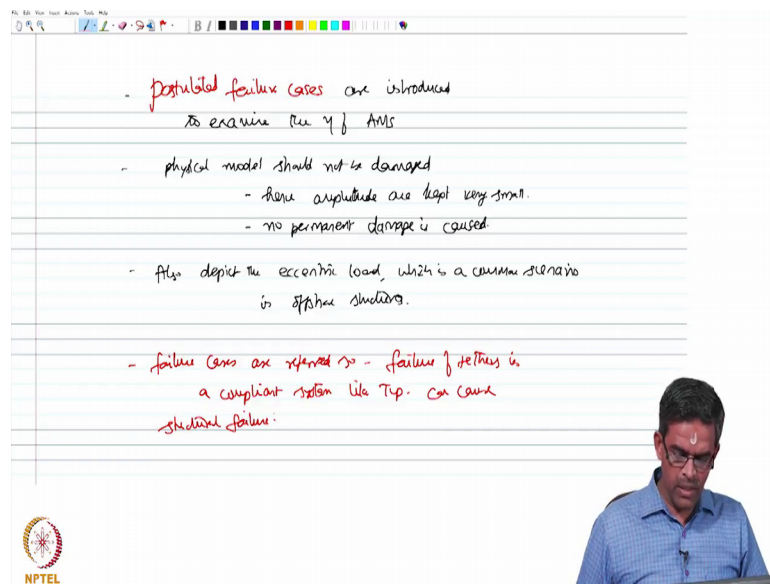 File Edit View Insert Actions Tools Help
B I
- Postulated failure cases are introduced
to examine the η of AMS
- physical model should not be damaged
- hence amplitude are kept very small.
- no permanent damage is caused.
- Also depict the eccentric load, which is a common scenario
in offshore structures.
- failure cases are referred to - failure of tethers in
a compliant system like TLP. can cause
structural failure.
NPTEL